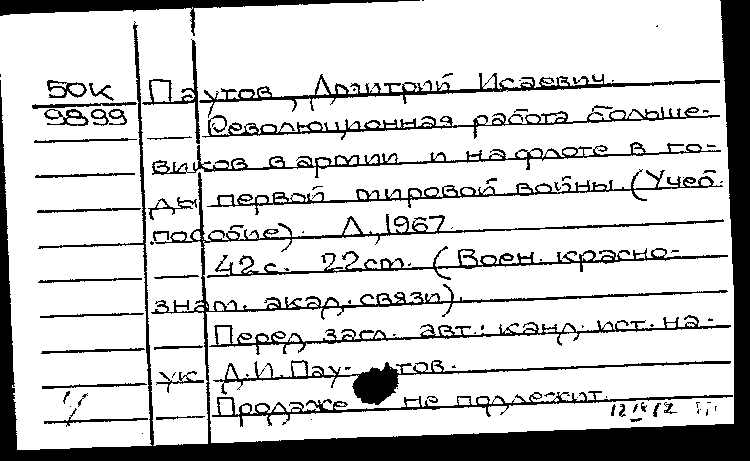 50К Паутов, Дмитрий Исаевич.
9899 Революционная работа больше-
виков в армии и на флоте в го-
ды первой мировой войны. (Учеб.
пособие). Л., 1967.
42 с. 22 см. (Воен. красно-
знам. акад. связи).
Перед загл. авт.: канд. ист. на-
ук Д. И. Пау- тов.
Продаже не подлежит.